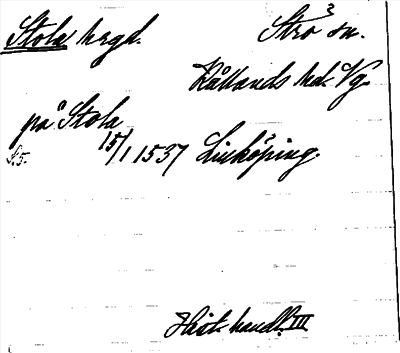 Stola hrgd. Strö sn.
Kållands hd. Vg.
på Stola
15/1 1537 Linköping.
Hist. handl. III